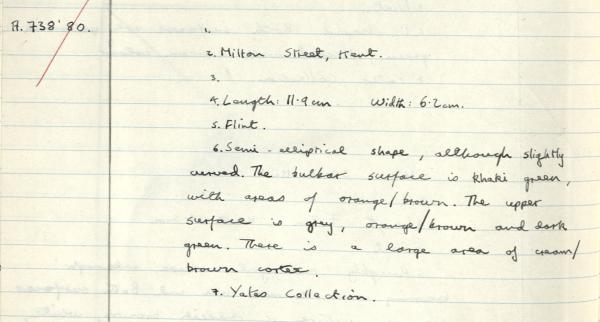 A.738'80.
1.
2. Milton Street, Kent.
3.
4. Length: 11.9cm   Width: 6.2cm.
5. Flint.
6. Semi-elliptical shape, although slightly
curved. The bulbar surface is khaki green,
with areas of orange/brown. The upper
surface is grey, orange/brown and dark
green. There is a large area of cream/
brown cortex.
7. Yates Collection.